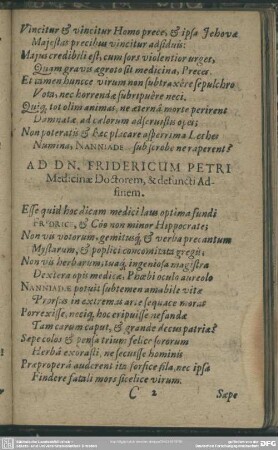 Vincitur & vincitur Homo prece, & ipsa Jehovæ
Majestas precibus vincitur adsiduis:
Majus credibili est, cum sors violentior urget,
Quam gravis ægroto sit medicina, Preces.
Et tamen huncce virum non subtraxere sepulchro
Vota, nec horrendæ subripuere neci.
Quiq, tot olim animas, ne æternâ morte perirent
Damnatæ, ad cælorum adseruisti opes:
Non poteratis & hac placare asperrima Lethes
Numina, NANNIADE sub scrobe ne raperent?
AD DN. FRIDERICUM PETRI
Medicinæ Doctorem, & defuncti Ad-
finem.
Esse quid hoc dicam medici laus optima fundi
FRIDRIC, & Côo non minor Hippocrate;
Non vis votorum, gemitusq, & verba precantum
Mystarum, & poplitis concomitata gregis:
Non vis herbarum, suasq, ingeniosa magistra
Dextera opis medicæ, Phœbi oculo aureolo
NANNIADÆ potuit subtemen amabile vitæ
Prorsus in extremas
Porrexisse, neciq, hoc eripuisse nefandæ
Tam carum caput, & grande decus patriæ?
Sæpe colos & pensa trium felice sororum
Herbâ exorasti, ne secuisse hominis
Præproperâ auderent ita forfice fila, nec ipsa
Findere fatali mors sicelice virum.
C 2 Sæpe